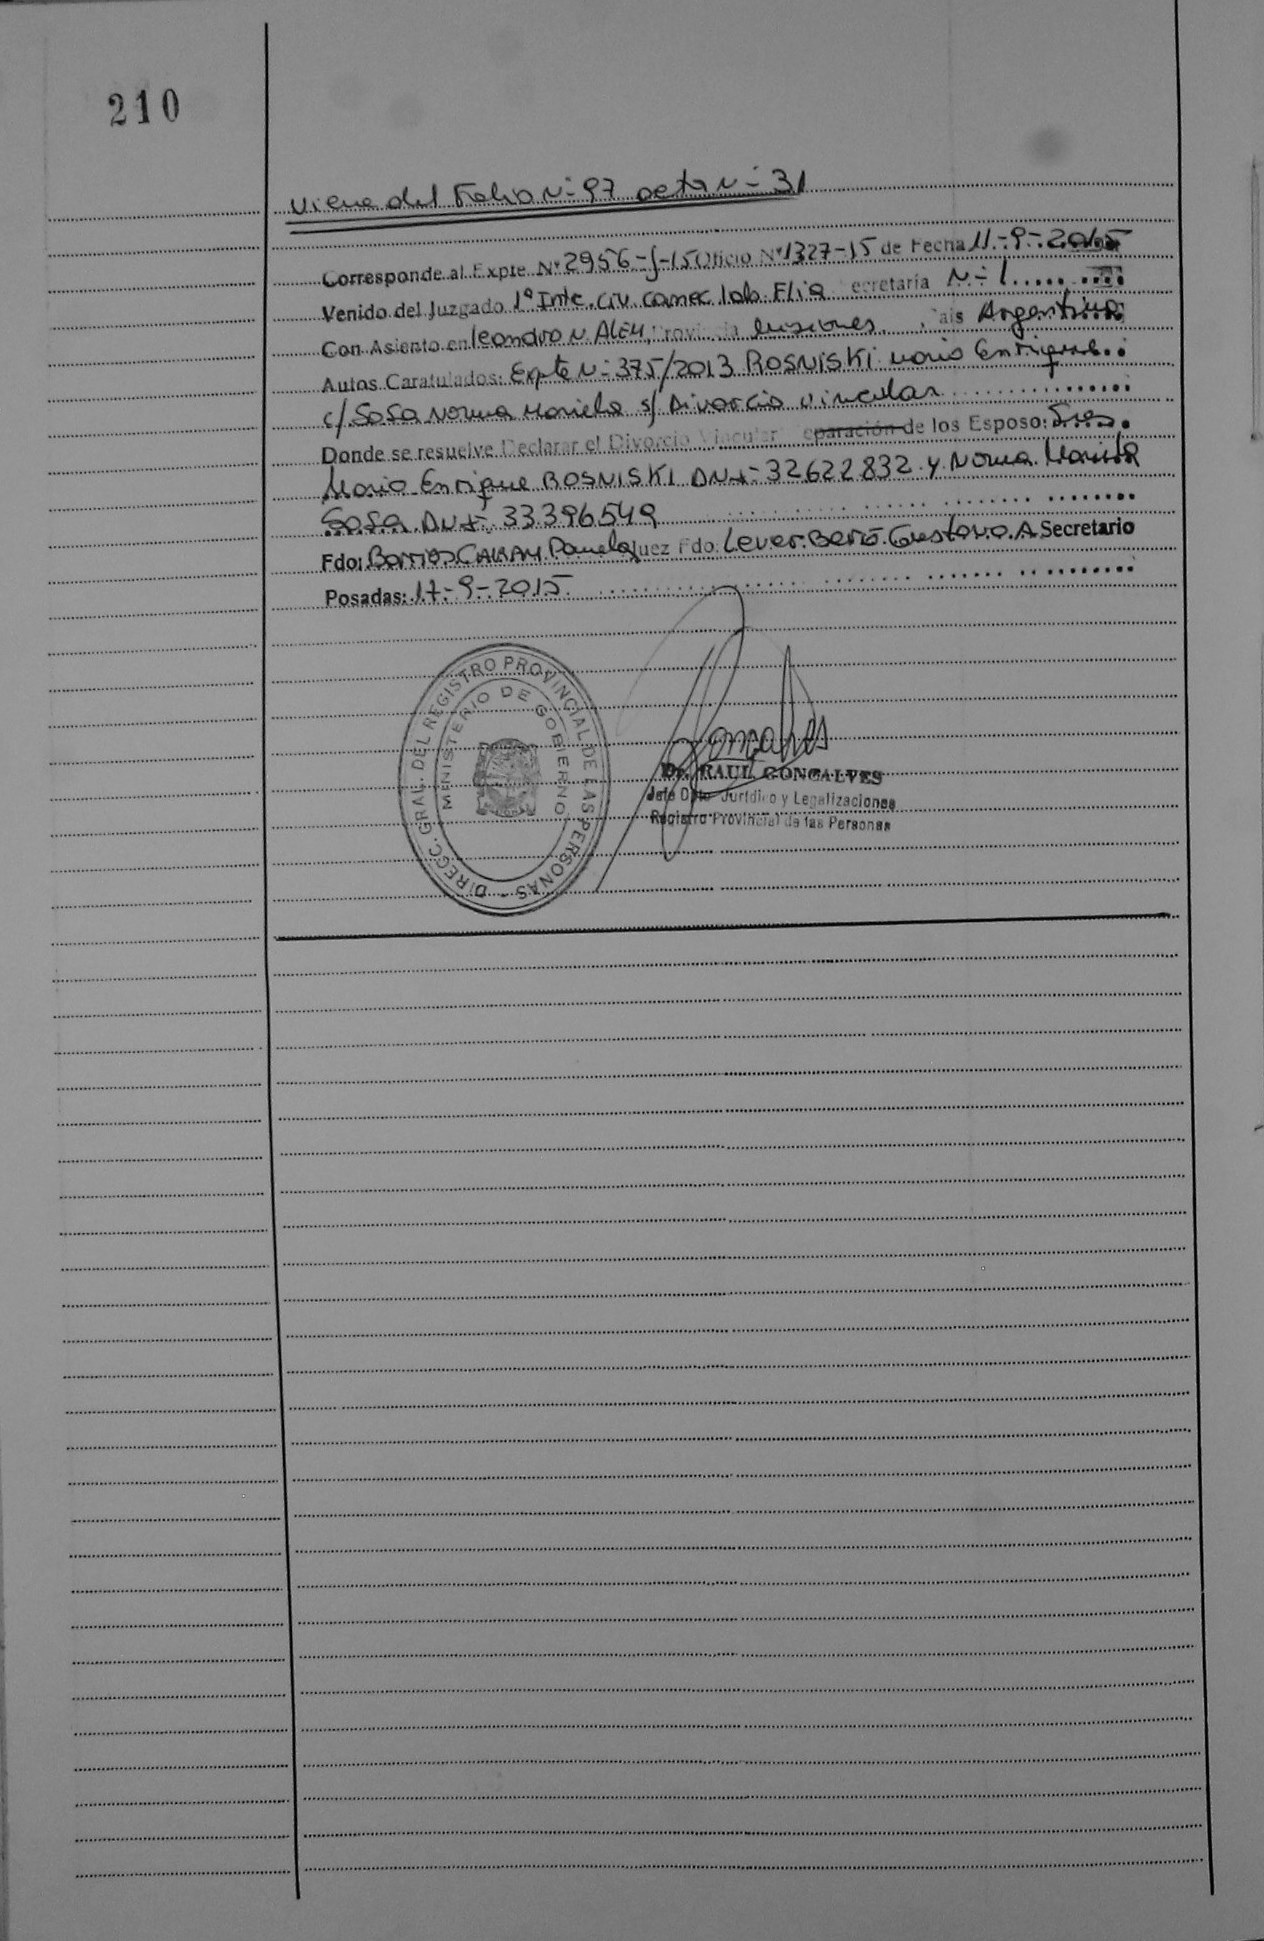 210
Viene del Folio N= 97 acta N= 31
Corresponde al Expte. Nº 2956-J-15 Oficio Nº 1327-15 de Fecha 11-9-2015
Venido del Juzgado 1º Inte. Civ. Comec. lab. Flia Secretaría N= 1
Con Asiento en leandro N. ALEM, Provincia Misiones País Argentina
Autos Caratulados: Expte N= 375/2013 ROSNISKI Mario Enrique
c/ Sosa Norma Mariela s/ Divorcio Vincular
Donde se resuelve Declarar el Divorcio Vincular eparación de los Esposo: Sres.
Mario Enrique ROSNISKI DNI= 32622832 y Norma Mariela
SOSA. DNI= 33396549
Fdo: Pamela Juez Fdo: Gustavo. A. Secretario
Posadas: 17-9-2015
DIRECC. GRAL. DEL REGISTRO PROVINCIAL DE LAS PERSONAS -
MINISTERIO DE GOBIERNO
Gonçalves
Dr. RAUL GONCALVES
Jefe Dpto Jurídico y Legalizaciones
Registro Provincial de las Personas